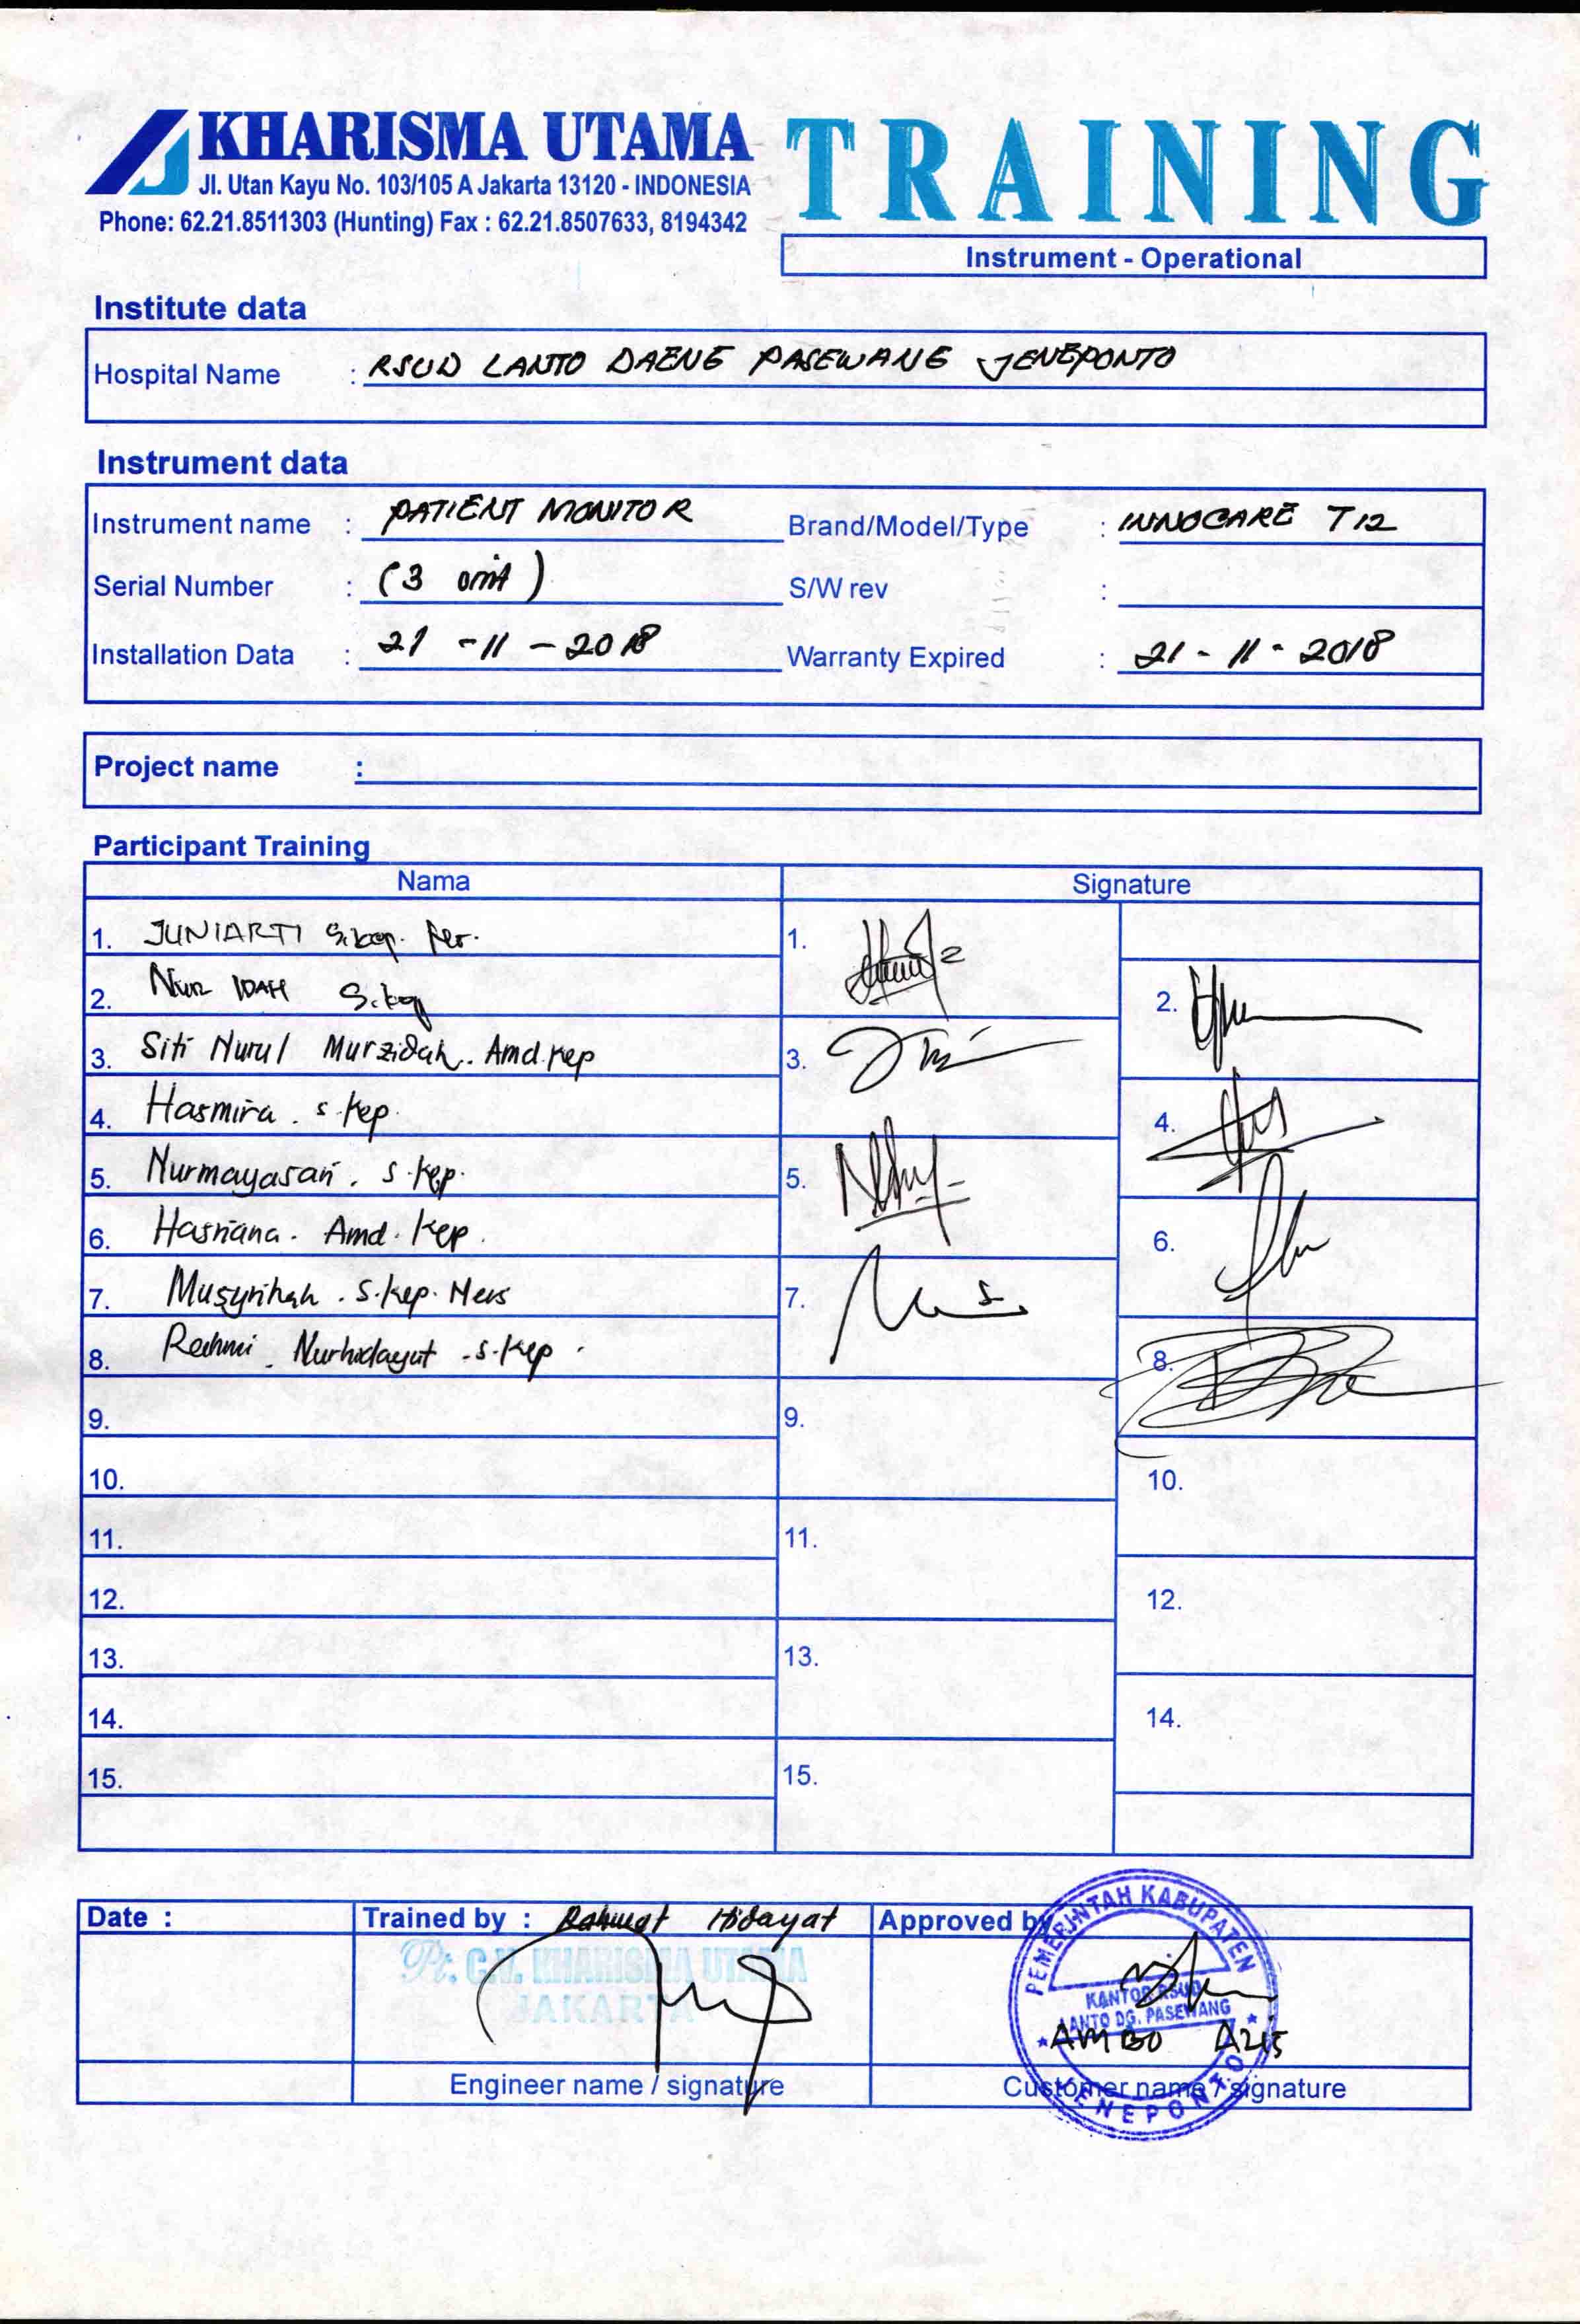 KHARISMA UTAMA
Jl. Utan Kayu No. 103/105 A Jakarta 13120 - INDONESIA
Phone: 62.21.8511303 (Hunting) Fax : 62.21.8507633, 8194342
TRAINING
Instrument - Operational
Institute data
Hospital Name : RSUD LANTO DAENG PASEWANG JENEPONTO
Instrument data
Instrument name : PATIENT MONITOR Brand/Model/Type : INNOCARE T12
Serial Number : (3 unit) S/W rev :
Installation Data : 21 - 11 - 2018 Warranty Expired : 21 - 11 - 2018
Project name :
Participant Training
Nama Signature
1. JUNIARTI S.kep. Ners. 1.
2. Nur IDAH S.kep 2.
3. Siti Nurul Murzidah. Amd.kep 3.
4. Hasmira . s.kep. 4.
5. Nurmayasari . S.kep. 5.
6. Hasriana. Amd. kep. 6.
7. Musyrihah . S.kep. Ners 7.
8. Nurhidayat .s.kep. 8.
9. 9.
10. 10.
11. 11.
12. 12.
13. 13.
14. 14.
15. 15.
Date : Trained by : Rahmat Hidayat Approved by
Pt. C.V. KHARISMA UTAMA
JAKARTA
PEMERINTAH KABUPATEN
KANTOR RSUD
LANTO DG. PASEWANG
JENEPONTO
AMBO AZIS
Engineer name / signature Customer name / signature